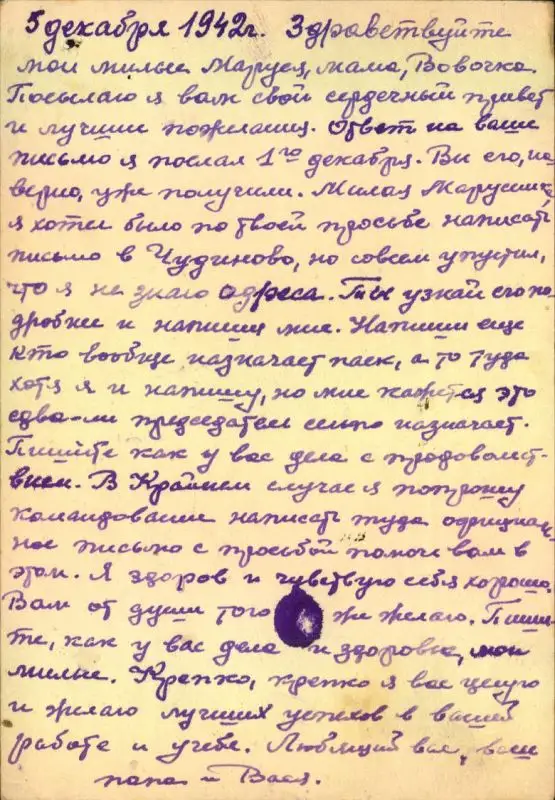 5 декабря 1942г. Здраветвуйте
мои милые Маруся, мама, Вовочка.
Посылаю я вам свой сердечный привет
и лучшие пожелания. Ответ на ваше
письмо я послал 1го декабря. Ви его, на-
верно, уже получили. Милая Марусинька,
я хотел было по твоей просьбе написать
письмо в Чудиново, но совсем упустил,
что я не знаю адреса. Ты узнай его по-
дробнее и напиши мне. Напиши еще
кто вообще назначает паек, а то туда
хотя я и напишу, но мне кажется это
едва-ли председатель сельпо назначает.
Пишите как у вас дела с продовольст-
вием. В Крайнем случае я попрошу
командование написать туда официаль-
ное письмо с просьбой помочь вам в
этом. Я здоров и чувствую себя хорошо.
Вам от души того же желаю. Пиши-
те, как у вас дела и здоровье, мои
милые. Крепко, крепко я вас целую
и желаю лучших успехов в вашей
работе и учебе. Любящий вас, ваш
папа и Вася.